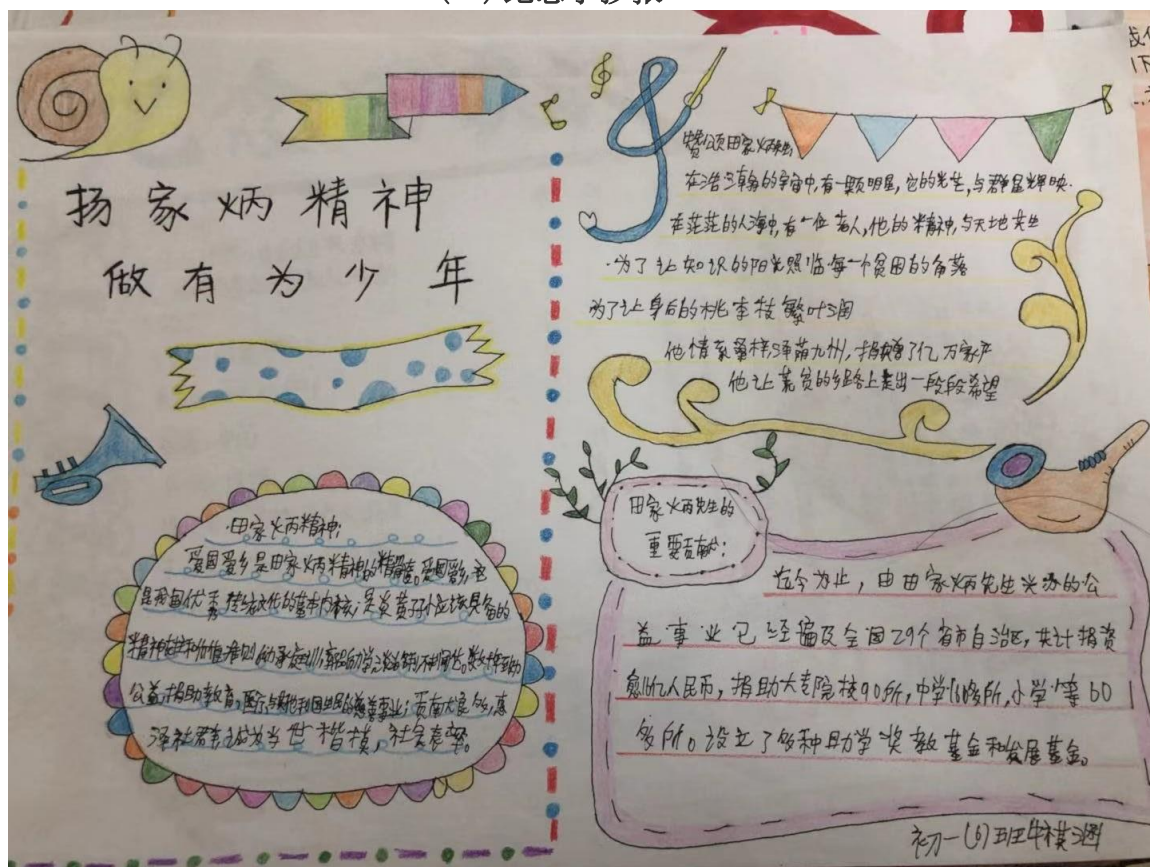 扬家炳精神
做有为少年
田家炳精神:
爱国爱乡是田家炳精神的精髓。爱国爱乡
是我国优秀传统文化的基本内核;是炎黄子孙应该具备的
精神和价值准则
公益,捐助教育,医疗,与其他利国
泽社群,成为当世楷模,社会表率。
赞颂田家炳
在浩瀚的宇宙中,有一颗明星,它的光芒,与群星辉映.
在茫茫的人海中,有一位老人,他的精神,与天地共生
为了让知识的阳光照临每一个贫困的角落
为了让身后的桃李枝繁叶润
他情系桑梓泽荫九州,捐赠了亿万家产
他让的路上走出一段段希望
田家炳先生的
重要贡献:
迄今为止,由田家炳先生兴办的公
益事业已经遍及全国29个省市自治区,共计捐资
亿人民币,捐助大专院校90所,中学所,小学等60
多所。设立了多种助学奖教基金和发展基金。
初一(6)班